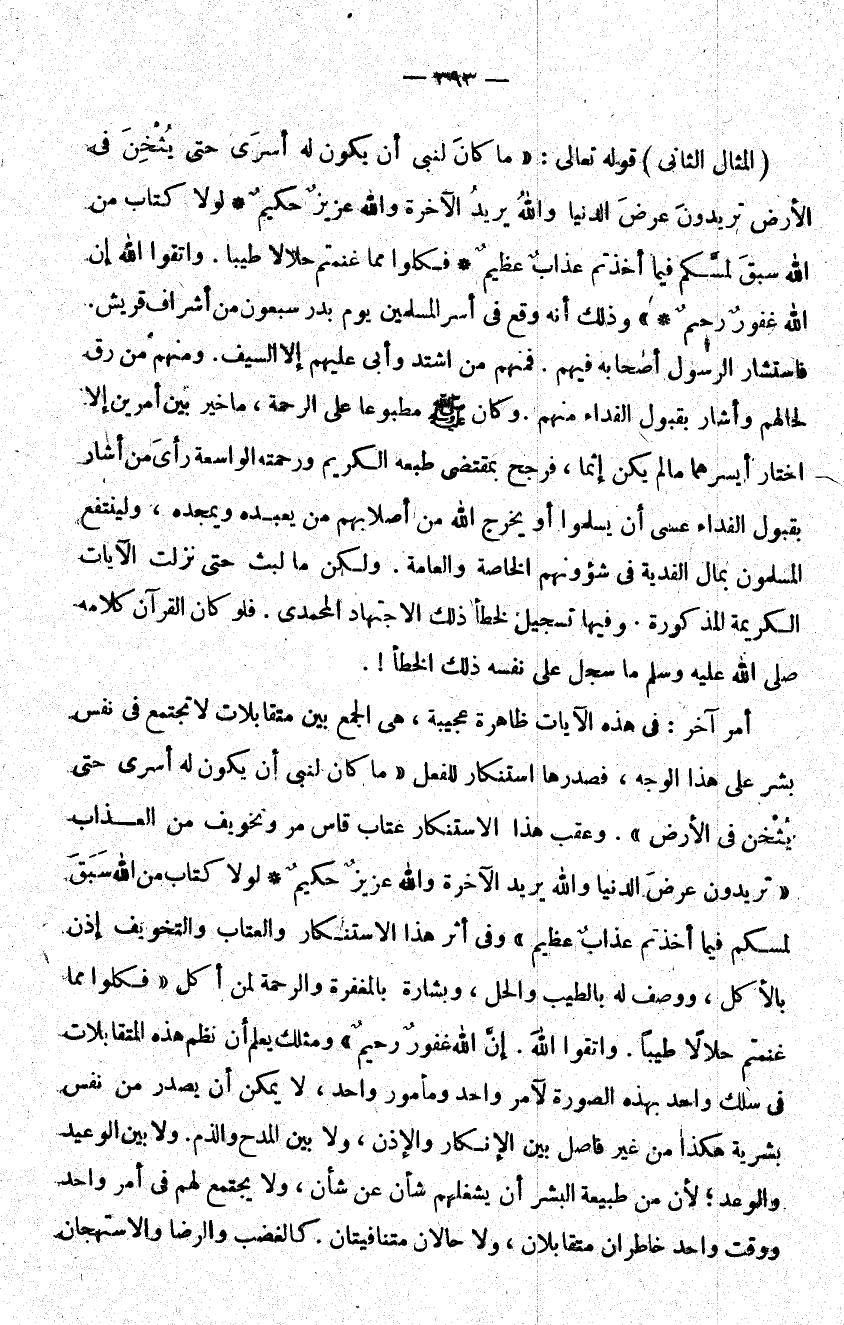 — ٣٩٣ —
( المثال الثانى ) قوله تعالى : « ما كانَ لنبى أن يكون له أسرَى حتى يُثْخِنَ فى
الأرض تريدونَ عرضَ الدنيا واللهُ يريدُ الآخرة والله عزيزٌ حكيمٌ * لولا كتاب من
الله سبقَ لمسَّكم فيما أخذتم عذابٌ عظيمٌ * فكلوا مما غنمتم حلالا طيبا . واتقوا الله إن
الله غفورٌ رحيمٌ * » وذلك أنه وقع فى أسر المسلمين يوم بدر سبعون من أشراف قريش .
فاستشار الرسول أصحابه فيهم . فمنهم من اشتد وأبى عليهم إلا السيف . ومنهم من رق
لحالهم وأشار بقبول الفداء منهم . وكان ﷺ مطبوعا على الرحمة ، ماخير بين أمرين إلا
اختار أيسرهما مالم يكن إثما ، فرجح بمقتضى طبعه الكريم ورحمته الواسعة رأىَ من أشار
بقبول الفداء عسى أن يسلموا أو يخرج الله من أصلابهم من يعبده ويمجده ، ولينتفع
المسلمون بمال الفدية فى شؤونهم الخاصة والعامة . ولكن ما لبث حتى نزلت الآيات
الكريمة المذكورة . وفيها تسجيل لخطأ ذلك الاجتهاد المحمدى . فلو كان القرآن كلامه
صلى الله عليه وسلم ما سجل على نفسه ذلك الخطأ ! .
أمر آخر : فى هذه الآيات ظاهرة عجيبة ، هى الجمع بين متقابلات لاتجتمع فى نفس
بشر على هذا الوجه ، فصدرها استنكار للفعل « ما كان لنبى أن يكون له أسرى حتى
يُثْخن فى الأرض » . وعقب هذا الاستنكار عتاب قاس مر وتخويف من العذاب
« تريدون عرضَ الدنيا والله يريد الآخرة والله عزيزٌ حكيمٌ * لولا كتاب من الله سَبَقَ
لمسكم فيما أخذتم عذابٌ عظيم » وفى أثر هذا الاستنكار والعتاب والتخويف إذن
بالأكل ، ووصف له بالطيب والحل ، وبشارة بالمغفرة والرحمة لمن أكل « فكلوا مما
غنمتم حلالًا طيباً . واتقوا اللهَ . إنَّ الله غفورٌ رحيمٌ » ومثلك يعلم أن نظم هذه المتقابلات
فى سلك واحد بهذه الصورة لآمر واحد ومأمور واحد ، لا يمكن أن يصدر من نفس
بشرية هكذا من غير فاصل بين الإنكار والإذن ، ولا بين المدح والذم . ولا بين الوعيد
والوعد ؛ لأن من طبيعة البشر أن يشغلهم شأن عن شأن ، ولا يجتمع لهم فى أمر واحد
ووقت واحد خاطران متقابلان ، ولا حالان متنافيتان . كالغضب والرضا والاستهجان